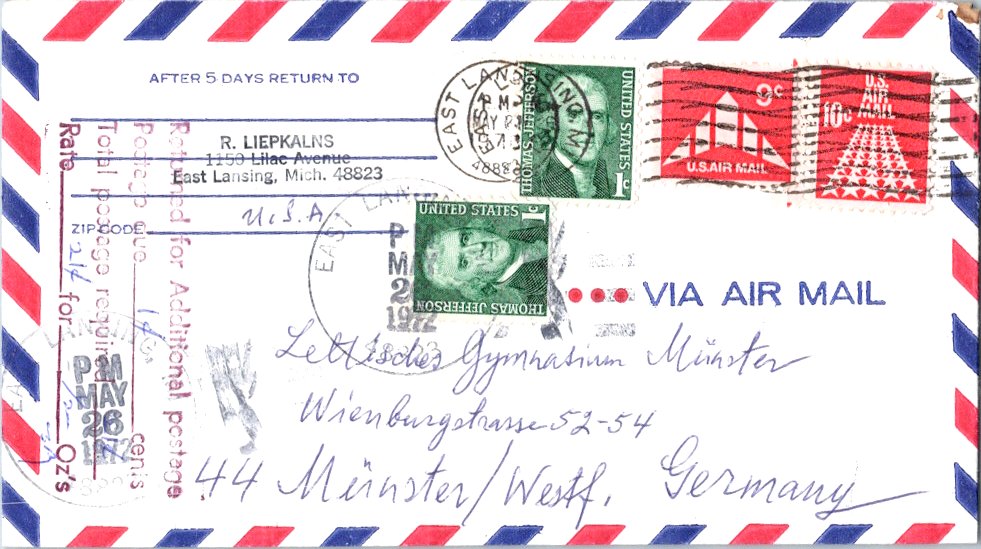 AFTER 5 DAYS RETURN TO
R. LIEPKALNS
1150 Lilac Avenue
East Lansing, Mich. 48823
U.S.A
ZIP CODE
Returned for Additional postage
Postage due 1¢ cents
Total postage required
Rate 21¢ for Oz's
EAST LANSING, M
PM
48823
THOMAS JEFFERSON
UNITED STATES
1c
9c
U.S. AIR MAIL
U.S.
AIR
MAIL
10c
EAST LAN
P
MAY
2
1972
UNITED STATES
1c
THOMAS JEFFERSON
LANSING,
PM
MAY
26
1972
VIA AIR MAIL
Lettisches Gymnasium Münster
Wienburgstrasse 52-54
44 Münster/Westf. Germany